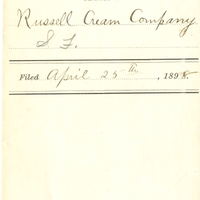 Russell Cream Company
S F.
Filed April 25th, 1898.